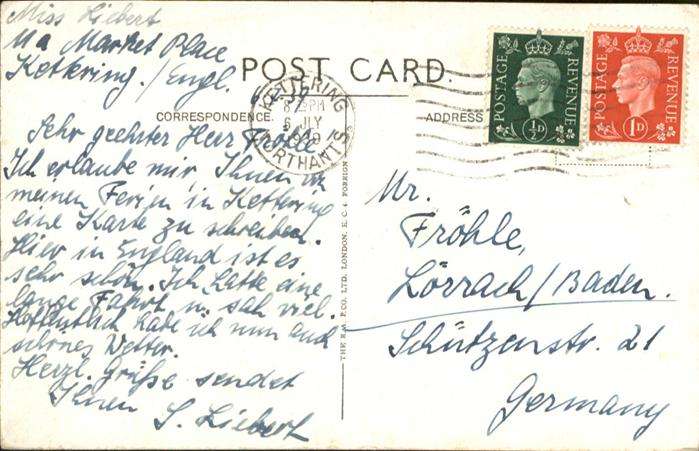 Miss Liebert
11a Market Place
Kettering./Engl.
POST CARD.
CORRESPONDENCE.
ADDRESS
KETTERING
8 PM
6 JLY
NORTHANTS
POSTAGE REVENUE
½D
POSTAGE REVENUE
1D
Sehr geehrter Herr Fröhle
Ich erlaube mir Ihnen in
meinen Ferien in Kettering
eine Karte zu schreiben.
Hier in England ist es
sehr schön. Ich hatte eine
lange Fahrt u. sah viel.
Hoffentlich habe ich nun auch
schönes Wetter.
Herzl. Grüße sendet
Ihnen S. Liebert
THE R.A. P. CO. LTD. LONDON. E.C.4 FOREIGN
Mr.
Fröhle,
Lörrach/Baden.
Schützenstr. 21
Germany